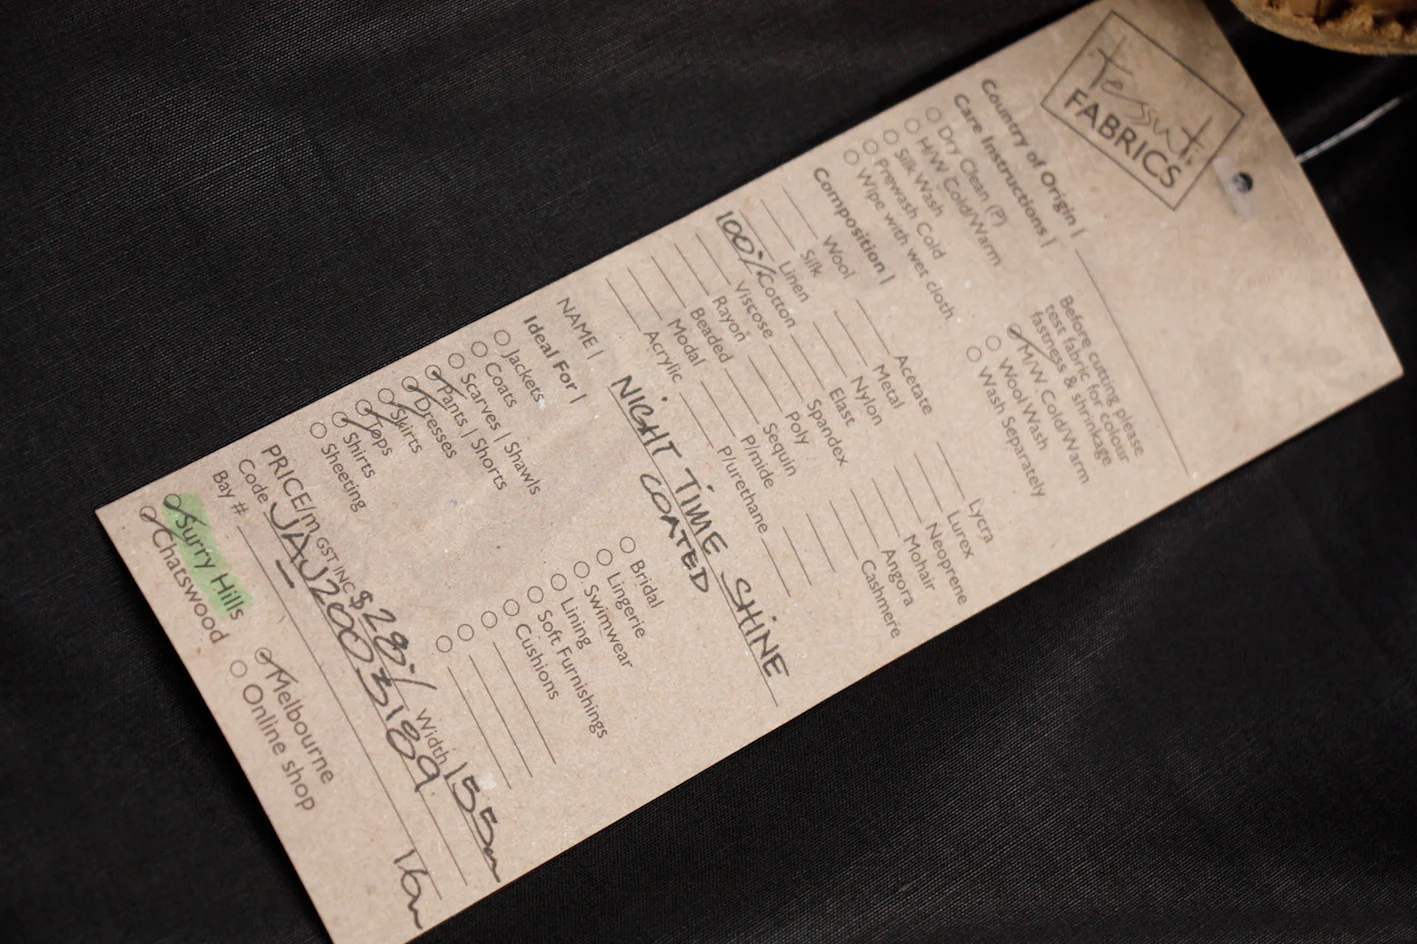 Tessuti
FABRICS
Country of Origin |
Care Instructions |
Dry Clean (P)
H/W Cold/Warm
Silk Wash
Prewash Cold
Wipe with wet cloth
Before cutting please
test fabric for colour
fastness & shrinkage
M/W Cold/Warm
Wool Wash
Wash Separately
Composition |
Wool
Silk
Linen
100% Cotton
Viscose
Rayon
Beaded
Modal
Acrylic
Acetate
Metal
Nylon
Elast
Spandex
Poly
Sequin
P/mide
P/urethane
Lycra
Lurex
Neoprene
Mohair
Angora
Cashmere
NAME | NIGHT TIME SHINE
COATED
Ideal For |
Jackets
Coats
Scarves | Shawls
Pants | Shorts
Dresses
Skirts
Tops
Shirts
Sheeting
Bridal
Lingerie
Swimwear
Lining
Soft Furnishings
Cushions
PRICE/m GST INC $28 Width 155
Code JAJ2003189
Bay # 16m
Surry Hills
Chatswood
Melbourne
Online shop